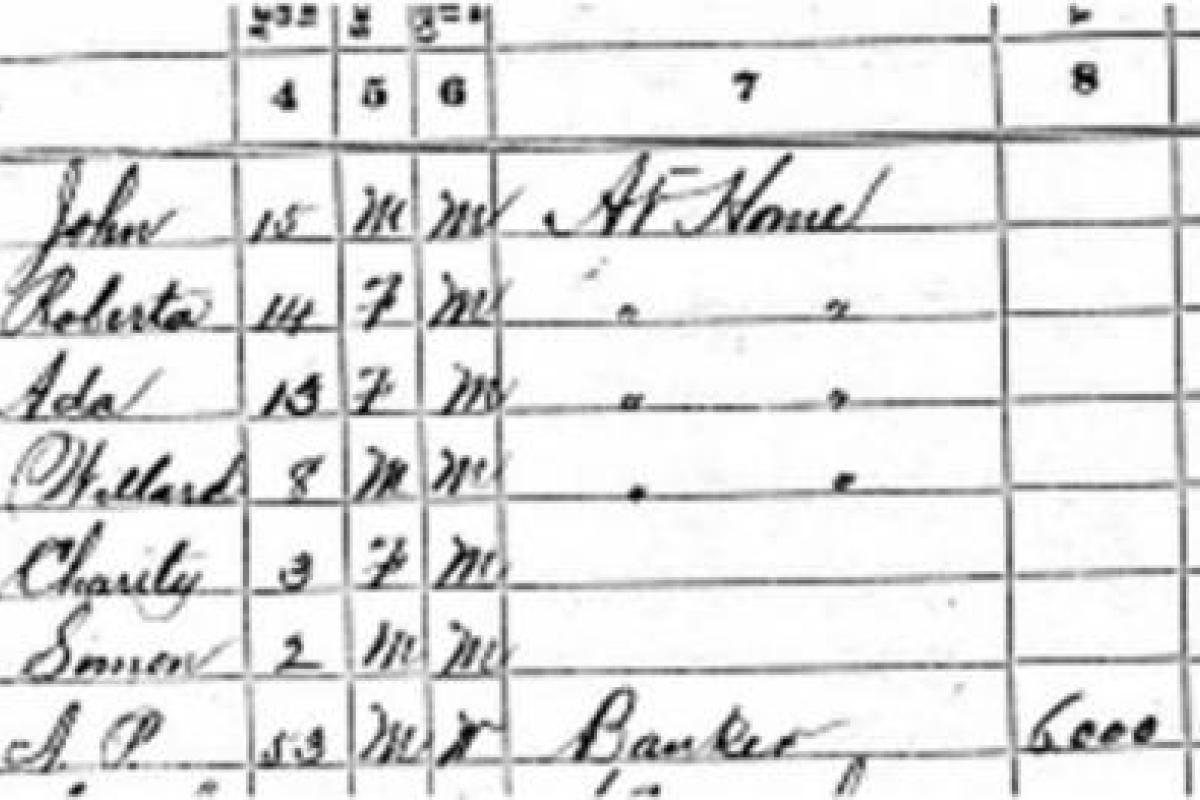 4 5 6 7 8
John 15 M M At Home
Roberta 14 F M " "
Ada 13 F M " "
Willard 8 M M " "
Charity 3 F M
Simon 2 M M
A. P. 53 M W Banker 6000